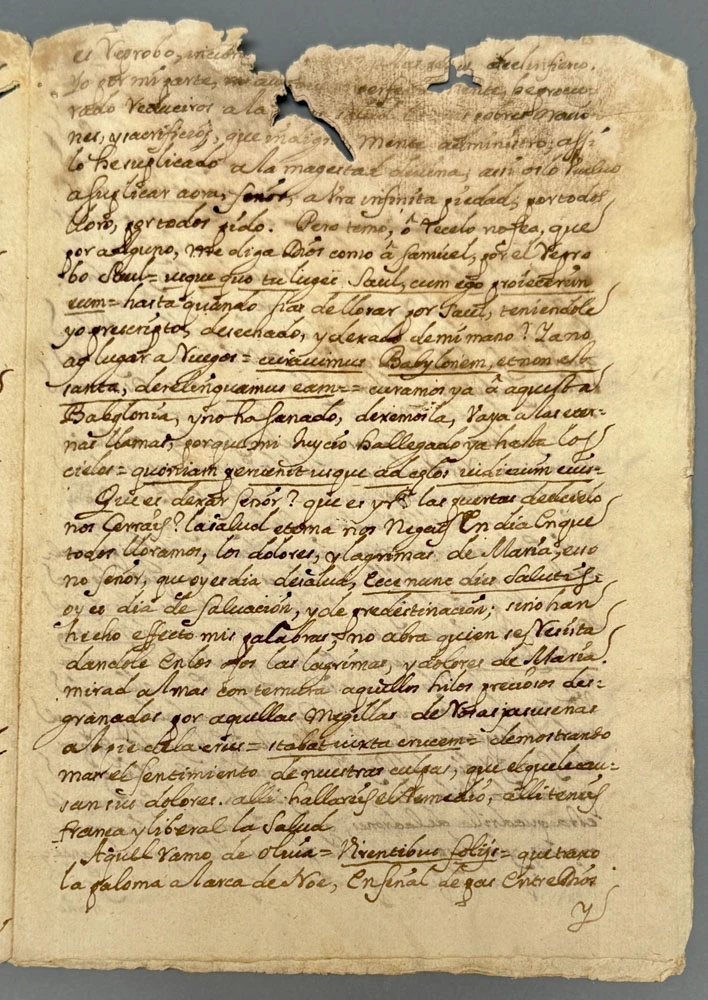 es Reprobo, a las penas del infierno.
Yo por mi parte, mente, he procu-
rado Reduciros a la salud pobres oracio
nes, y sacrificios, que mente administro; assi
lo he suplicado a la magestad divina, assi oso vuelvo
a suplicar aora, señor, a vra infinita piedad, por todos
lloro, por todos pido. Pero temo, ô Recelo no sea, que
por alguno, me diga Dios como â Samuel, por el Repro
bo Saul= usque quo tu luges Saul, cum ego proiecerim
eum= hasta quando has de llorar por Saul, teniendole
yo prescripto, desechado, y dexado de mi mano? Ya no
ay lugar a Ruegos= curavimus Babylonem, et non est
sanata, derelinquamus eam= curamos ya â aquesta
Babylonia, y no ha sanado, dexemosla, vaya a las eter-
nas llamas, porque mi juycio ha llegado ya hasta los
cielos= quoniam pervenit usque ad cælos iudicium eius=
Que es dexar señor? que es las puertas del cielo
nos Cerrais? la salud eterna nos Negais? En dia En que
todos lloramos, los dolores, y lagrimas de Maria, esso
no señor, que oy es dia de salud, Ecce nunc dies Salutis=
oy es dia de salvación, y de predestinación; si no han
hecho effecto mis palabras, no abra quien se Resista
dandole En los ojos las lagrimas, y dolores de Maria.
mirad Almas con ternura aquellos hilos preciosos des=
granados por aquellas Megillas de Rosas
al pie de la crus= stabat iuxta crucem= demostrando
mas el sentimiento de nuestras culpas, que el que le cau-
san sus dolores. alli hallareis el Remedio, alli teneis
franca y liberal la Salud
Aquel Ramo de oliva= Virentibus folijs= que traxo
la paloma al arca de Noe, En señal de pas Entre Dios
y